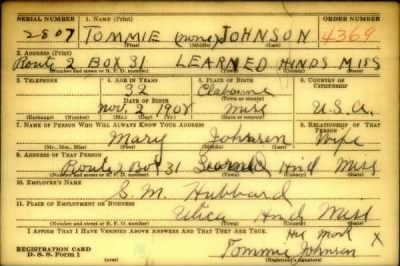 SERIAL NUMBER 1. NAME (Print) ORDER NUMBER
2807 TOMMIE (none) JOHNSON 4369
(First) (Middle) (Last)
2. ADDRESS (Print)
Route 2 BOX 31 LEARNED HINDS MISS
(Number and street or R. F. D. number) (Town) (County) (State)
3. TELEPHONE 4. AGE IN YEARS 5. PLACE OF BIRTH 6. COUNTRY OF CITIZENSHIP
32 Claborne
DATE OF BIRTH (Town or county)
Nov. 2 1908 Miss U.S.A.
(Exchange) (Number) (Mo.) (Day) (Yr.) (State or country)
7. NAME OF PERSON WHO WILL ALWAYS KNOW YOUR ADDRESS 8. RELATIONSHIP OF THAT PERSON
Mary Johnson Wife
(Mr., Mrs., Miss) (First) (Middle) (Last)
9. ADDRESS OF THAT PERSON
Route 2 Box 31 Learned Hind Miss
(Number and street or R. F. D. number) (Town) (County) (State)
10. EMPLOYER'S NAME
S. M. Hubbard
11. PLACE OF EMPLOYMENT OR BUSINESS
Utica Hind Miss
(Number and street or R. F. D. number) (Town) (County) (State)
I AFFIRM THAT I HAVE VERIFIED ABOVE ANSWERS AND THAT THEY ARE TRUE.
His Mark X
REGISTRATION CARD Tommie Johnson
D. S. S. Form 1 (Registrant's signature)